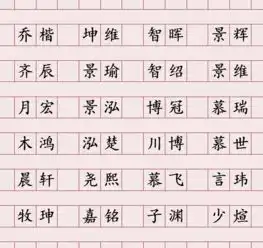 乔楷 坤维 智晖 景辉
齐辰 景瑜 智绍 景维
月宏 景泓 博冠 慕瑞
木鸿 泓楚 川博 慕世
晨轩 尧熙 慕飞 言玮
牧珅 嘉铭 子渊 少煊